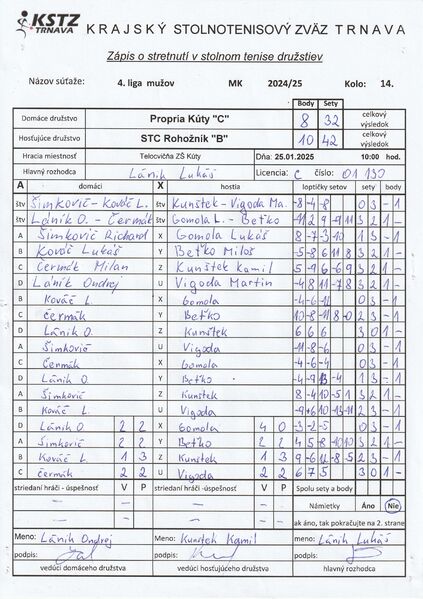 KSTZ TRNAVA KRAJSKÝ STOLNOTENISOVÝ ZVÄZ TRNAVA
Zápis o stretnutí v stolnom tenise družstiev
Názov súťaže: 4. liga mužov MK 2024/25 Kolo: 14.
Body Sety
Domáce družstvo Propria Kúty "C" 8 32 celkový výsledok
Hosťujúce družstvo STC Rohožník "B" 10 42 celkový výsledok
Hracia miestnosť Telocvičňa ZŠ Kúty Dňa: 25.01.2025 10:00 hod.
Hlavný rozhodca Lánik Lukáš Licencia: C číslo: 01 130
A domáci X hostia loptičky setov sety body
štv Šimkovič - Kováč L. štv Kunštek - Vigoda Ma. -8 -4 -8 0 3 -1
štv Lánik O. - Čermák štv Gomola L. - Beťko
A Šimkovič Richard X Gomola Lukáš 8 -7 -3 -10 1 3 -1
B Kováč Lukáš Y Beťko Miloš -5 -8 6 11 8 3 2 1 -
C Čermák Milan Z Kunštek Kamil 5 -9 6 -6 9 3 2 1 -
D Lánik Ondrej U Vigoda Martin -4 8 11 -7 8 3 2 1 -
B Kováč L. X Gomola -4 -6 -11 0 3 -1
C Čermák Y Beťko 10 -8 -11 8 0 2 3 -1
D Lánik O. Z Kunštek 6 6 6 3 0 1 -
A Šimkovič U Vigoda -11 -8 -6 0 3 -1
C Čermák X Gomola -4 -6 -4 0 3 -1
D Lánik O. Y Beťko 1 3 -1
A Šimkovič Z Kunštek 8 -4 10 -5 1 3 2 1 -
B Kováč L. U Vigoda 2 3 -1
D Lánik O. 2 2 X Gomola 4 0 -3 -2 -5 0 3 -1
A Šimkovič 2 2 Y Beťko 2 2 3 2 1 -
B Kováč L. 1 3 Z Kunštek 1 3 9 -6 12 -8 -5 2 3 -1
C Čermák 2 2 U Vigoda 2 2 6 7 5 3 0 1 -
striedaní hráči - úspešnosť V P striedaní hráči - úspešnosť V P Spolu sety a body
Námietky Áno Nie
ak áno, tak pokračujte na 2. strane
Meno: Lánik Ondrej Meno: Kunštek Kamil meno: Lánik Lukáš
podpis: podpis: podpis:
vedúci domáceho družstva vedúci hosťujúceho družstva hlavný rozhodca